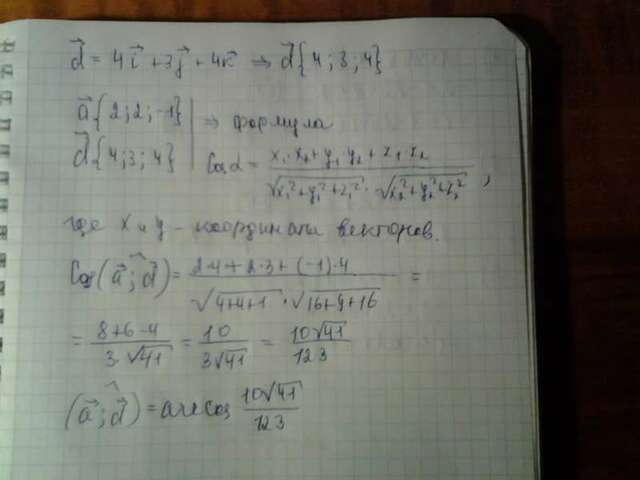 d⃗ = 4i⃗ + 3j⃗ + 4k⃗ ⇒ d⃗{4; 3; 4}
a⃗{2; 2; -1}
d⃗{4; 3; 4} ⇒ формула
Cos α = (x₁·x₂ + y₁·y₂ + z₁·z₂) / (√(x₁² + y₁² + z₁²) · √(x₂² + y₂² + z₂²)),
где x и y - координаты векторов.
Cos(a⃗; d⃗) = (2·4 + 2·3 + (-1)·4) / (√(4+4+1) · √(16+9+16)) =
= (8+6-4) / (3·√41) = 10 / (3√41) = 10√41 / 123
(a⃗; d⃗) = arccos 10√41 / 123